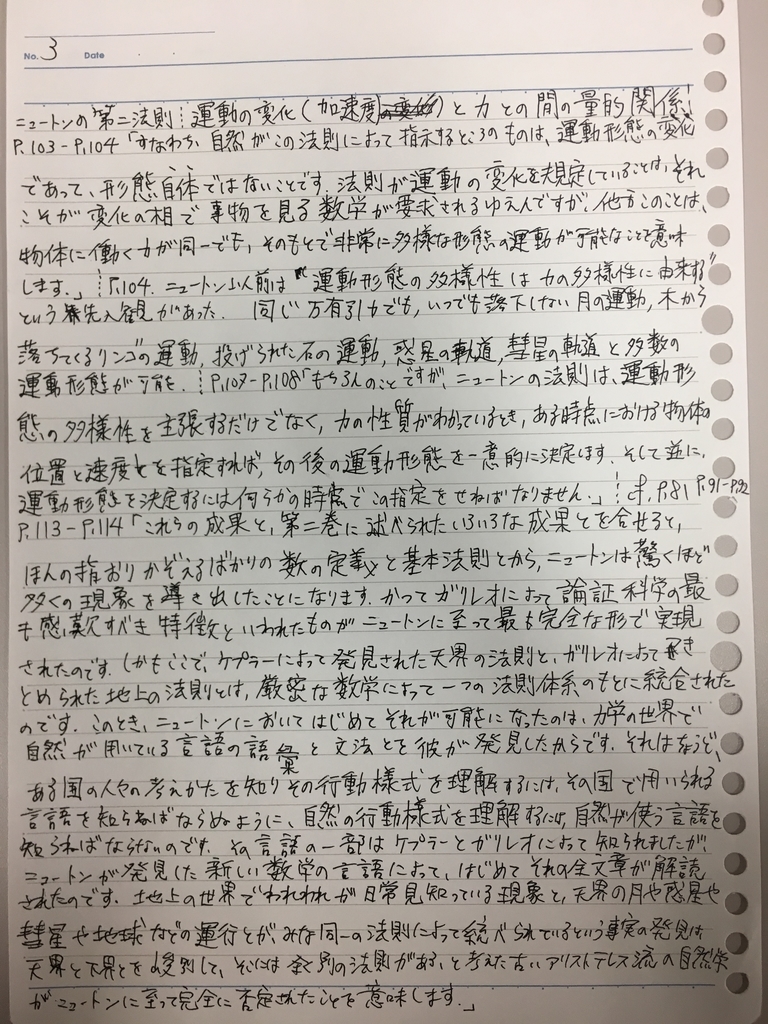 No. 3 Date
ニュートンの第二法則┆運動の変化(加速度)と力との間の量的関係!
P.103-P.104「すなわち、自然がこの法則によって指示するところのものは、運動形態の変化
であって、形態自体ではないことです。法則が運動の変化を規定していることは、それ
こそが変化の相で事物を見る数学が要求されるゆえんですが、他方このことは、
物体に働く力が同一でも、そのもとで非常に多様な形態の運動が可能なことを意味
します。」┆P.104. ニュートン以前は“運動形態の多様性は力の多様性に由来する”
という先入観があった. 同じ万有引力でも, いつでも落下しない月の運動, 木から
落ちてくるリンゴの運動, 投げられた石の運動, 惑星の軌道, 彗星の軌道と多数の
運動形態が可能. ┆P.107-P.108「もちろんのことですが、ニュートンの法則は、運動形
態の多様性を主張するだけでなく, 力の性質がわかっているとき, ある時点における物体の
位置と速度とを指定すれば, その後の運動形態を一意的に決定します. そして並に,
運動形態を決定するには何らかの時点でこの指定をせねばなりません.」┆cf. P.81 P.91-P.92
P.113-P.114「これらの成果と, 第二巻に述べられたいろいろな成果とを合せると,
ほんの指おりかぞえるばかりの数の定義と基本法則とから, ニュートンは驚くほど
多くの現象を導き出したことになります. かつてガリレオによって論証科学の最
も感歎すべき特徴といわれたものがニュートンに至って最も完全な形で実現
されたのです. しかもここで, ケプラーによって発見された天界の法則と, ガリレオによってつき
とめられた地上の法則とは, 厳密な数学によって一つの法則体系のもとに統合された
のです. このとき, ニュートンにおいてはじめてそれが可能になったのは, 力学の世界で
自然が用いている言語の語彙と文法とを彼が発見したからです. それはちょうど,
ある国の人々の考えかたを知りその行動様式を理解するには, その国で用いられる
言語を知らねばならぬように, 自然の行動様式を理解するには, 自然が使う言語を
知らねばならないのです. その言語の一部はケプラーとガリレオによって知られましたが,
ニュートンが発見した新しい数学の言語によって, はじめてその全文章が解読
されたのです. 地上の世界でわれわれが日常見知っている現象と, 天界の月や惑星や
彗星や地球などの運行とが, みな同一の法則によって統べられているという事実の発見は
天界と下界とを峻別して, そこには全く別の法則がある, と考えた古いアリストテレス流の自然学
がニュートンに至って完全に否定されたことを意味します.」